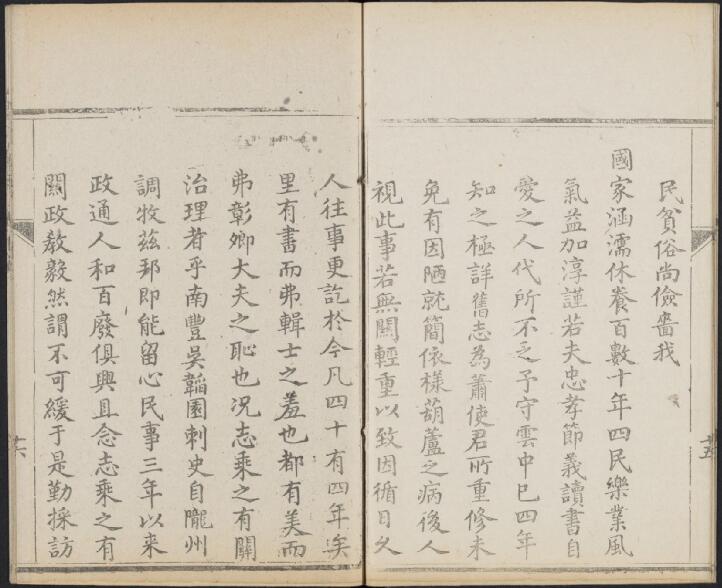 民貧俗尚儉嗇我
國家涵濡休養百數十年四民樂業風
氣益加淳謹若夫忠孝節義讀書自
愛之人代所不乏予守雲中已四年
知之極詳舊志為蕭使君所重修未
免有因陋就簡依樣葫蘆之病後人
視此事若無關輕重以致因循日久
人往事更訖於今凡四十有四年矣
里有書而弗輯士之羞也都有美而
弗彰鄉大夫之恥也况志乘之有關
治理者乎南豐吳韜園刺史自隴州
調牧茲邦即能留心民事三年以来
政通人和百廢俱興且念志乘之有
關政教毅然謂不可緩于是勤採訪